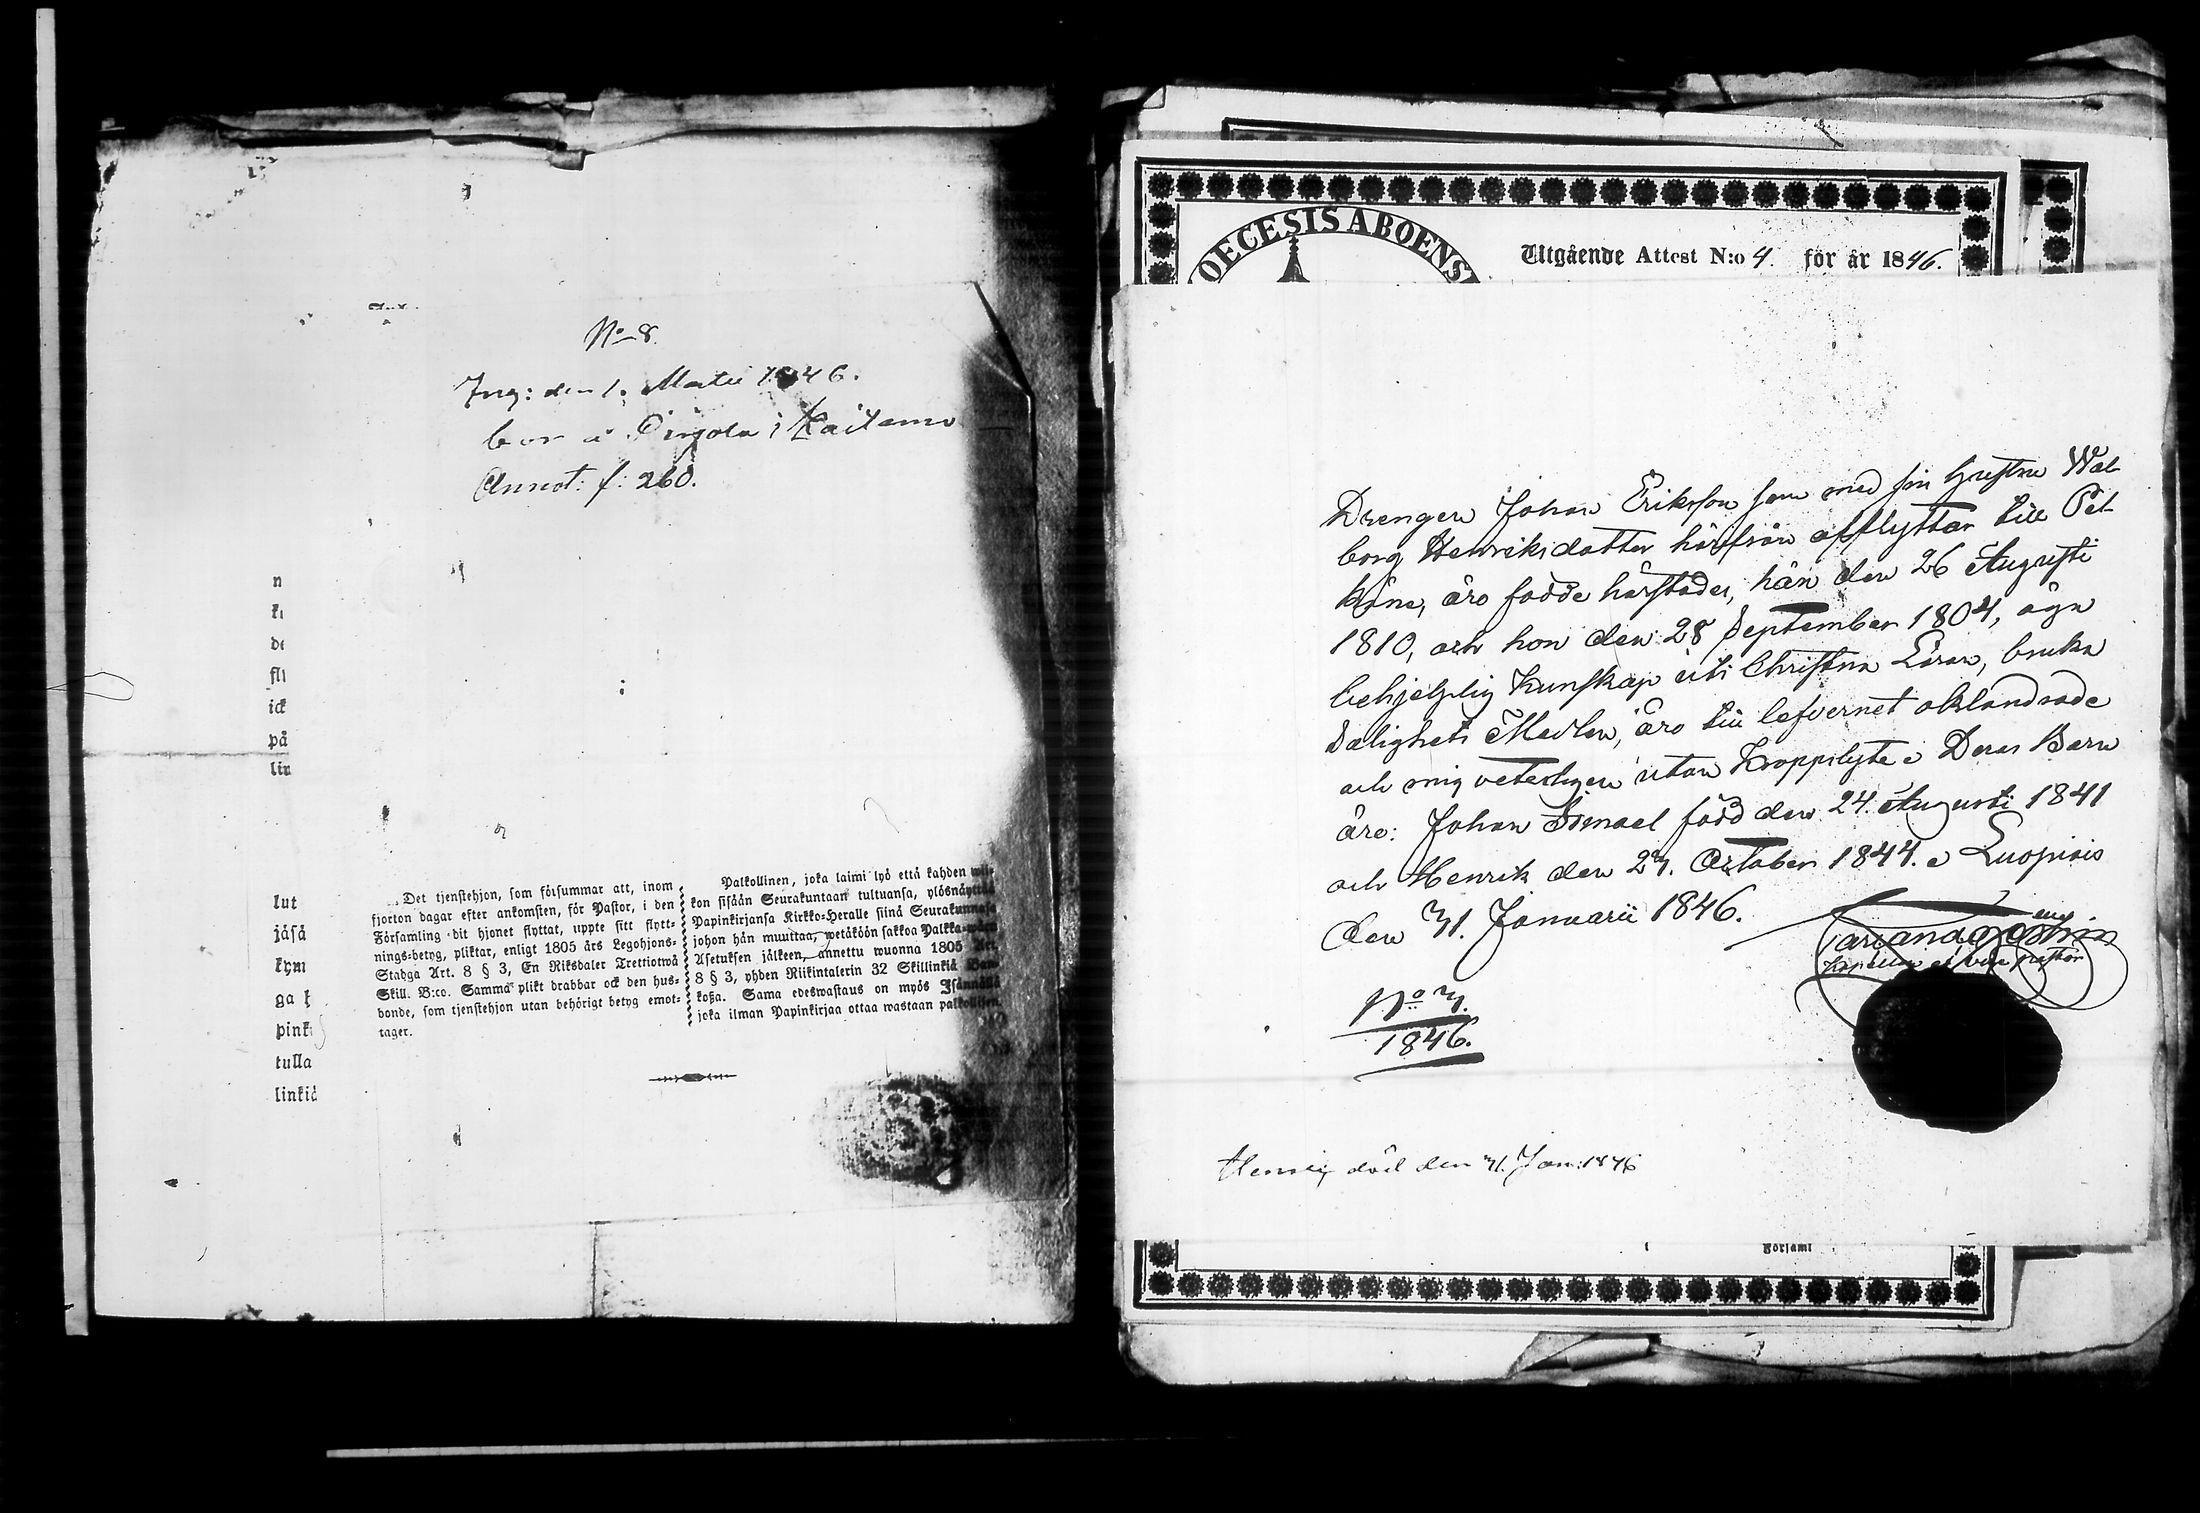 No 8.
Ing: den 1. Martii 1846.
bor å i Kaitamo
Annot: f: 260.
n
de
ick
på
lin
lut
jäsä
kym
ga
pink
tulla
linkiä
Det tjenstehjon, som försummar att, inom
fjorton dagar efter ankomsten, för Pastor, i den
Församling dit hjonet flyttat, uppte sitt flytt-
nings-betyg, pliktar, enligt 1805 års Legohjons-
Stadga Art. 8 § 3, En Riksdaler Trettiotwå
Skill. B:co. Samma plikt drabbar ock den hus-
bonde, som tjenstehjon utan behörigt betyg emot-
tager.
Palkollinen, joka laimi lyö että kahden wii-
kon sisään Seurakuntaan tultuansa, ylösnäyttää
Papinkirjansa Kirkko-Heralle siinä Seurakunnasa
johon hän muuttaa, wetäköön sakkoa Palkka-wäen
Asetuksen jälkeen, annettu wuonna 1805 Art.
8 § 3, yhden Riikintalerin 32 Skillinkiä Ban-
koßa. Sama edeswastaus on myös Isännällä
joka ilman Papinkirjaa ottaa wastaan palkollisen.
OECESIS ABOENS
Utgående Attest N:o 4 för år 1846.
Drengen Johan Eriksson som med sin hustru Wal-
borg Henriksdotter härifrån afflyttar till Pel-
käne, äro födde härstädes, han den 26 Augusti
1810, och hon den 28 September 1804, äga
behjelplig kunskap uti Christna Läran, bruka
Salighets Medlen, äro till lefvernet oklandrade
och mig veterligen utan kroppslyte. Deras Barn
äro: Johan Ismael född den 24 Augusti 1841
och Henrik den 27. October 1844. Luopiois
den 31. Januarii 1846.
No 3.
1846.
Henrik död den 31. Jan: 1846
Församl